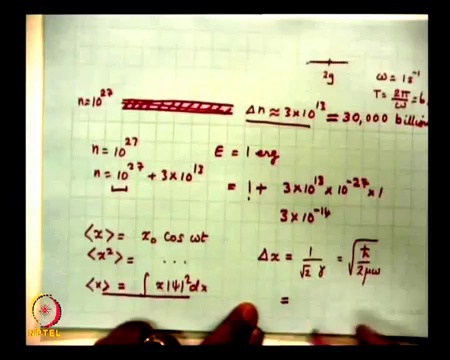 2g
ω = 1 s⁻¹
T = 2π/ω = 6.
n=10²⁷
Δn ≈ 3×10¹³ = 30,000 billion
n = 10²⁷
E = 1 erg
n = 10²⁷ + 3×10¹³
= 1 + 3×10¹³ × 10⁻²⁷ × 1
3×10⁻¹⁴
<x> = x₀ cos ωt
<x²> = ...
Δx = 1/√2 γ = √ħ/2μω
<x> = ∫ x|ψ|² dx
=
NPTEL